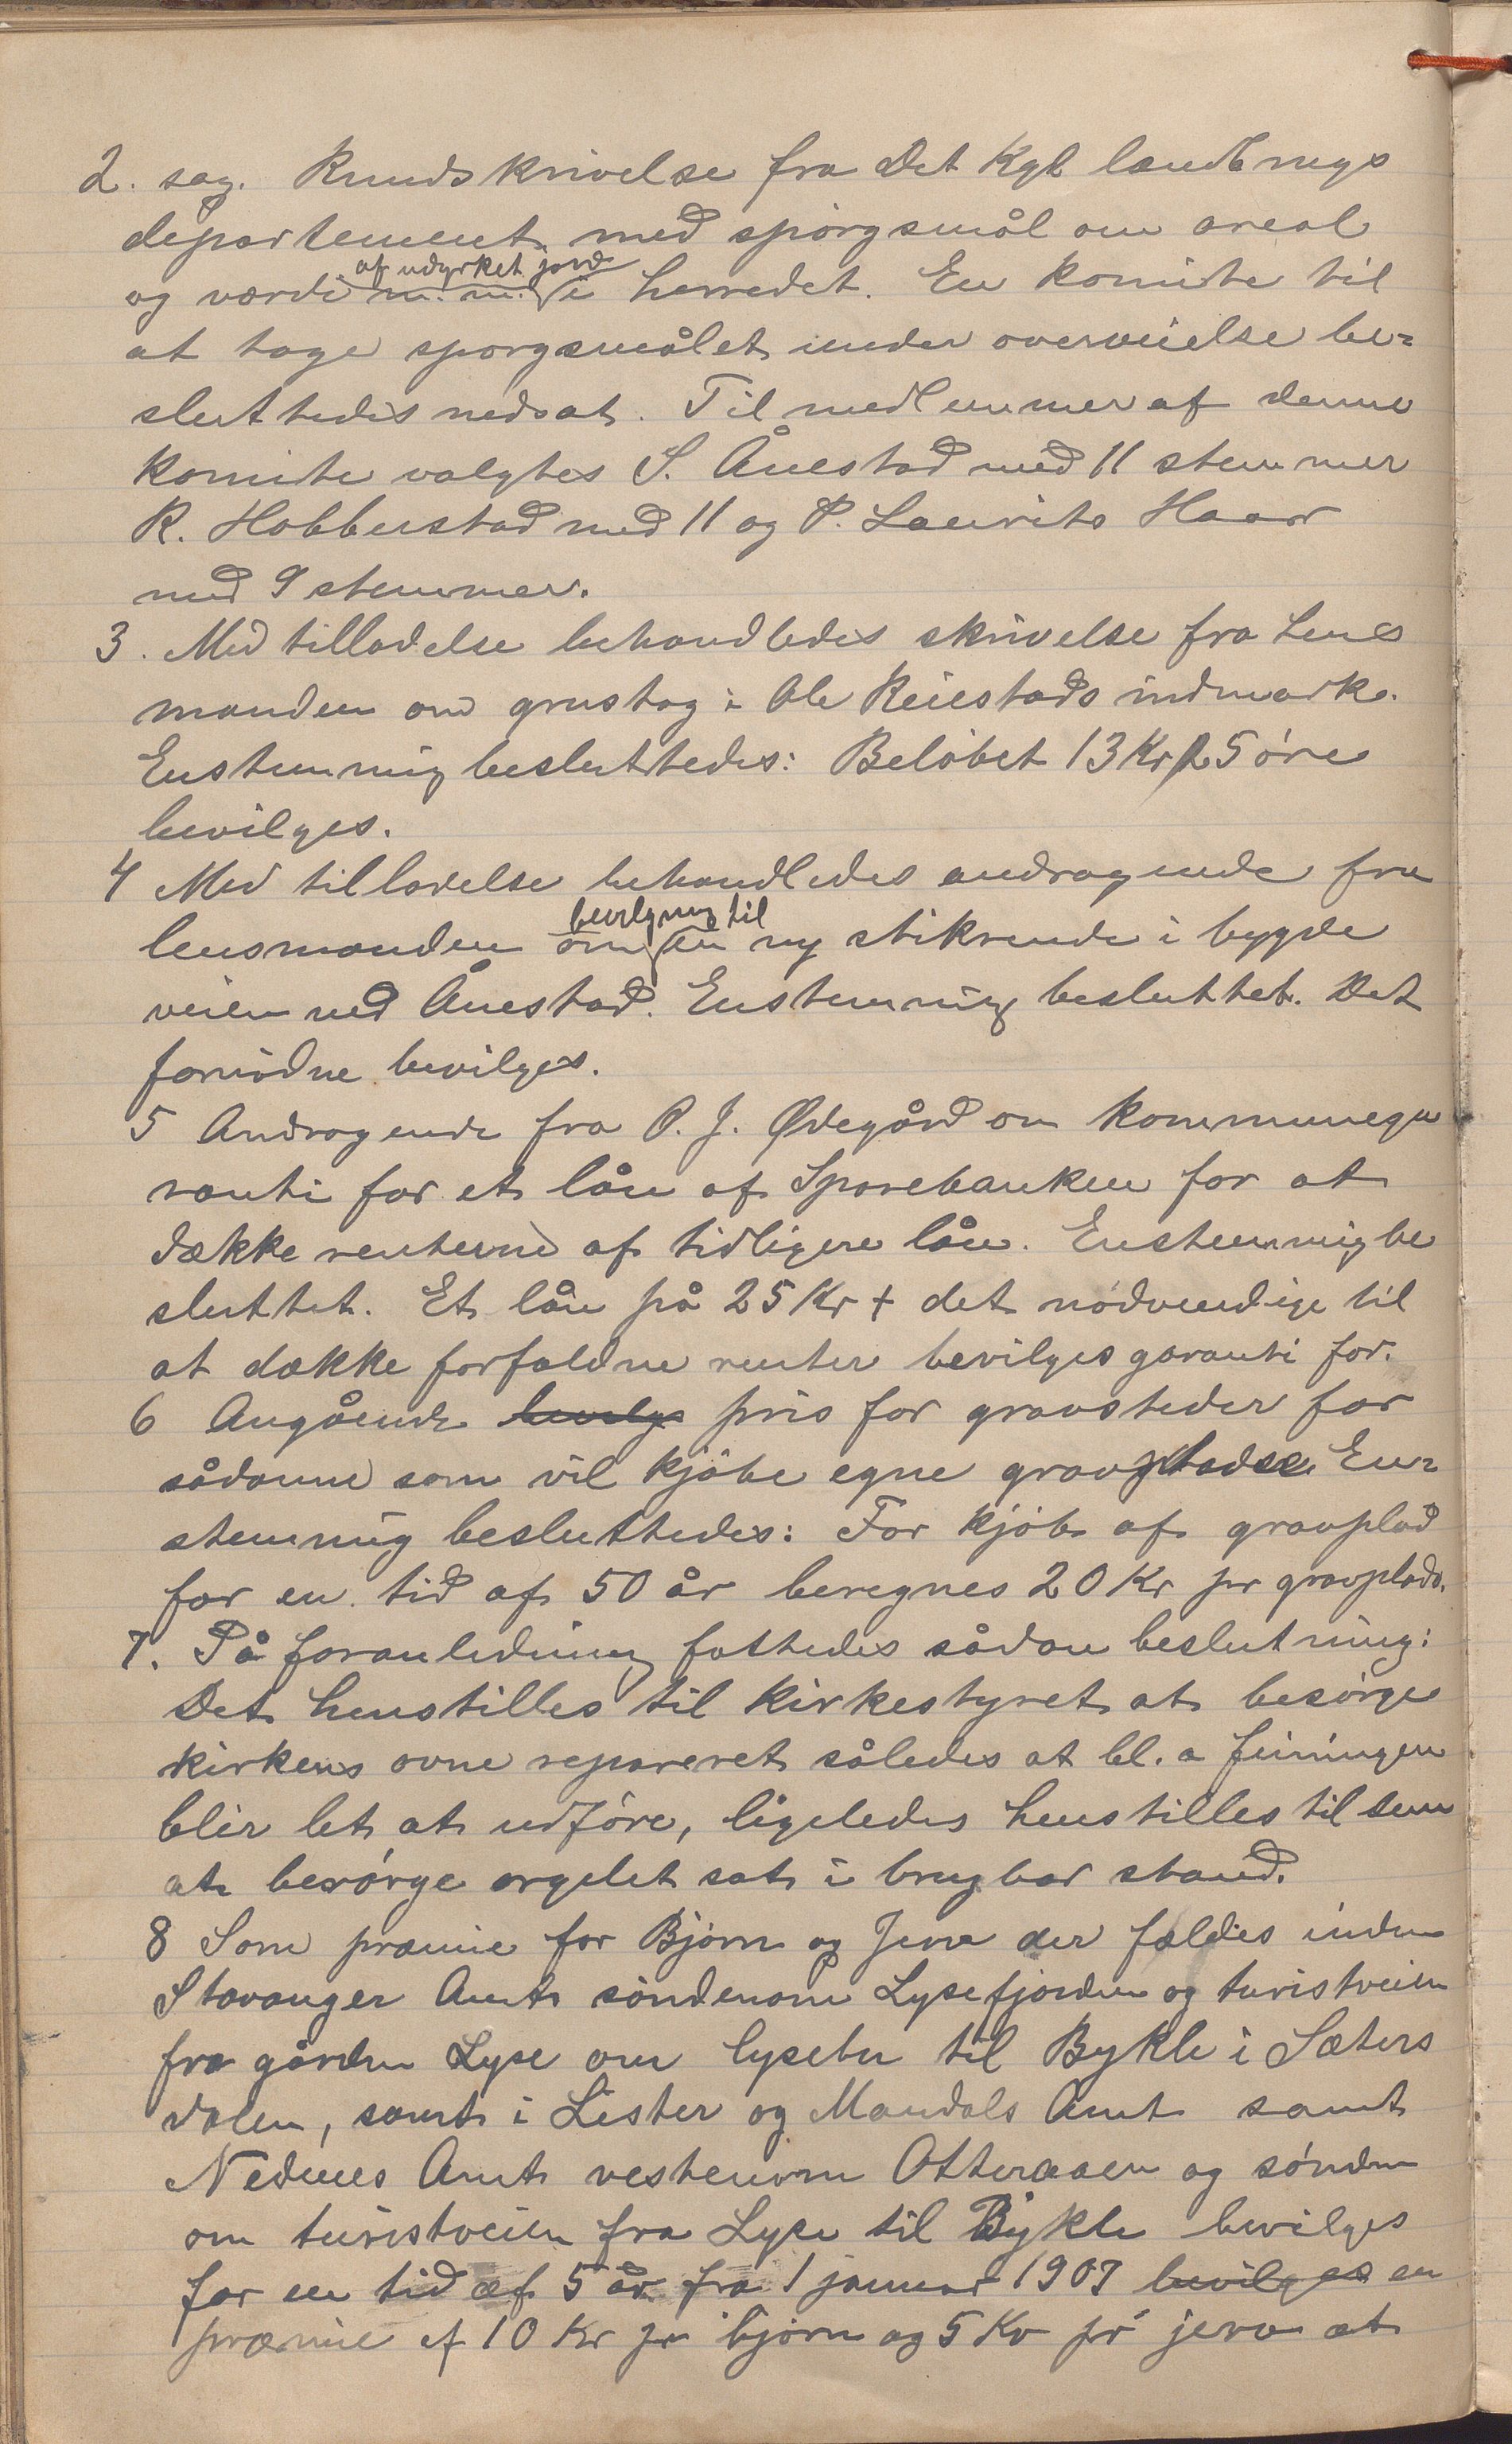 2. sag. Rundskrivelse fra Det Kgl landbrugs
departement med spörgsmål om areal
af udyrket jord
og værdi m. m. i herredet. En komite til
at tage spørgsmålet under overveielse be=
sluttedes nedsat. Til medlemmer af denne
komite valgtes S. Ånestad med 11 stemmer
R. Hobberstad med 11 og P. Laurits Haar
med 9 stemmer.
3. Med tilladelse behandledes skrivelse fra Lens
manden om grustag i Ole Reiestads indmark.
Enstemmig besluttedes: Belöbet 13 Kr 25 öre
bevilges.
4 Med tilladelse behandledes andragende fra
bevilgning til
lensmanden om en ny stikrende i bygde
veien ved Ånestad. Enstemmig besluttet. Det
fornödne bevilges.
5 Andragende fra O. J. Ødegård om kommunega
ranti for et lån af Sparebanken for at
dække renterne af tidligere lån. Enstemmig be
sluttet. Et lån på 25 Kr + det nödvendige til
at dække forfaldne renter bevilges garanti for.
6 Angående bevilg pris for gravsteder for
sådanne som vil kjöbe egne gravpladse. En=
stemmig besluttedes: For kjöb af gravplad
for en tid af 50 år beregnes 20 Kr pr gravplads.
7. På foranledning fattedes sådan beslutning:
Det henstilles til kirkestyret at besörge
kirkens ovne repareret således at bl. a feiningen
blir let at udföre, ligeledes henstilles til dem
at besörge orgelet sat i brugbar stand.
8 Som præmie for Björn og Jerv der fældes inden
Stavanger Amt söndenom Lysefjorden og turistveien
fra gården Lyse om lysebu til Bykle i Sæters
dalen, samt i Lister og Mandals Amt samt
Nedenes Amt vestenom Otteraaen og sönden
om turistveien fra Lyse til Bykle bevilges
for en tid af 5 år fra 1 januar 1907 bevilges en
præmie af 10 Kr pr björn og 5 Kr pr jerv at